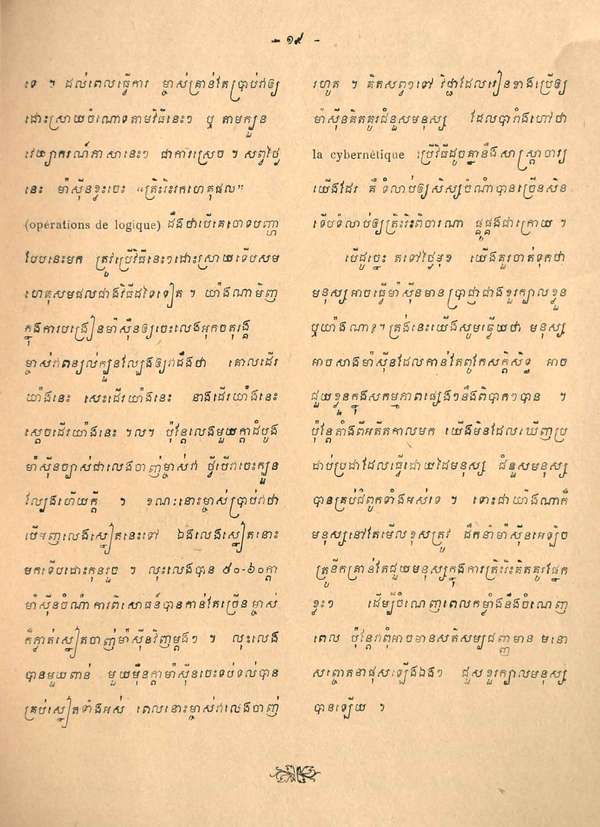 - ១៩ -
ទេ ។ ដល់ពេលធ្វើការ ម្ចាស់គ្រាន់តែប្រាប់វាឲ្យ
ដោះស្រាយចំណោទតាមវិធីនេះៗ ឬ តាមក្បួន
វេយ្យាករណ៍ភាសានេះៗ ជាការស្រេច ។ សព្វថ្ងៃ
នេះ ម៉ាស៊ីនខ្លះចេះ “ត្រិះរិះរកហេតុផល”
(opérations de logique) ដឹងថាបើគេចោទបញ្ហា
បែបនេះមក ត្រូវប្រើវិធីនេះៗដោះស្រាយទើបសម
ហេតុសមផលជាងវិធីដទៃទៀត ។ យ៉ាងណាមិញ
ក្នុងការបង្រៀនម៉ាស៊ីនឲ្យចេះលេងអុកចតុរង្គ
ម្ចាស់វាពន្យល់ក្បួនល្បែងឲ្យវាដឹងថា គោលដើរ
យ៉ាងនេះ សេះដើរយ៉ាងនេះ នាងដើរយ៉ាងនេះ
ស្តេចដើរយ៉ាងនេះ ។ល។ ប៉ុន្តែលេងមួយក្តាដំបូង
ម៉ាស៊ីនច្បាស់ជាលេងចាញ់ម្ចាស់វា ថ្វីបើវាចេះក្បួន
ល្បែងហើយក្តី ។ ខណៈនោះម្ចាស់ប្រាប់វាថា
បើអញលេងស្នៀតនេះទៅ ឯងលេងស្នៀតនោះ
មកទើបដោះកូនរួច ។ លុះលេងបាន ៥០-៦០ក្តា
ម៉ាស៊ីនចំណាំការពិសោធន៍បានកាន់តែច្រើន ម្ចាស់
ក៏ភ្លាត់ស្នៀតចាញ់ម៉ាស៊ីនវិញម្តងៗ ។ លុះលេង
បានមួយពាន់ មួយម៉ឺនក្តាម៉ាស៊ីនចេះទប់ទល់បាន
គ្រប់ស្នៀតទាំងអស់ ពេលនោះម្ចាស់វាលេងចាញ់
រហូត ។ គិតសព្វៗទៅ វិជ្ជាដែលរៀនខាងប្រើឲ្យ
ម៉ាស៊ីនគិតគូរជំនួសមនុស្ស ដែលបារាំងហៅថា
la cybernétique ប្រើវិធីដូចគ្នានឹងសាស្ត្រាចារ្យ
យើងដែរ គឺ ទំលាប់ឲ្យសិស្សចំណាំបានច្រើនសិន
ទើបទំលាប់ឲ្យត្រិះរិះពិចារណា ផ្គូផ្គងជាក្រោយ ។
បើដូច្នេះ តទៅថ្ងៃមុខ យើងគួរចាត់ទុកថា
មនុស្សអាចធ្វើម៉ាស៊ីនមានប្រាជ្ញាជាងខួរក្បាលខ្លួន
ឬយ៉ាងណា?។ ត្រង់នេះយើងសូមឆ្លើយថា មនុស្ស
អាចសាងម៉ាស៊ីនដែលកាន់តែពូកែសក្តិសិទ្ធ អាច
ជួយខ្លួនក្នុងសកម្មភាពផ្សេងៗនឹងពិបាកៗបាន ។
ប៉ុន្តែតាំងពីអតីតកាលមក យើងមិនដែលឃើញប្រ
ដាប់ប្រដាដែលធ្វើដោយដៃមនុស្ស ជំនួសមនុស្ស
បានគ្រប់ជំពូកទាំងអស់ទេ ។ ទោះជាយ៉ាងណាក៏
មនុស្សនៅតែមើលខុសត្រូវ ដឹកនាំម៉ាស៊ីនអេឡិច
ត្រូនីកគ្រាន់តែជួយមនុស្សក្នុងការត្រិះរិះគិតគូរផ្នែក
ខ្លះៗ ដើម្បីចំណេញពេលកម្លាំងនឹងចំណេញ
ពេល ប៉ុន្តែវាពុំអាចមានសតិសម្បជញ្ញាមាន មនោ
សញ្ចេតនាផុសឡើងឯងៗ ជួសខួរក្បាលមនុស្ស
បានឡើយ ។